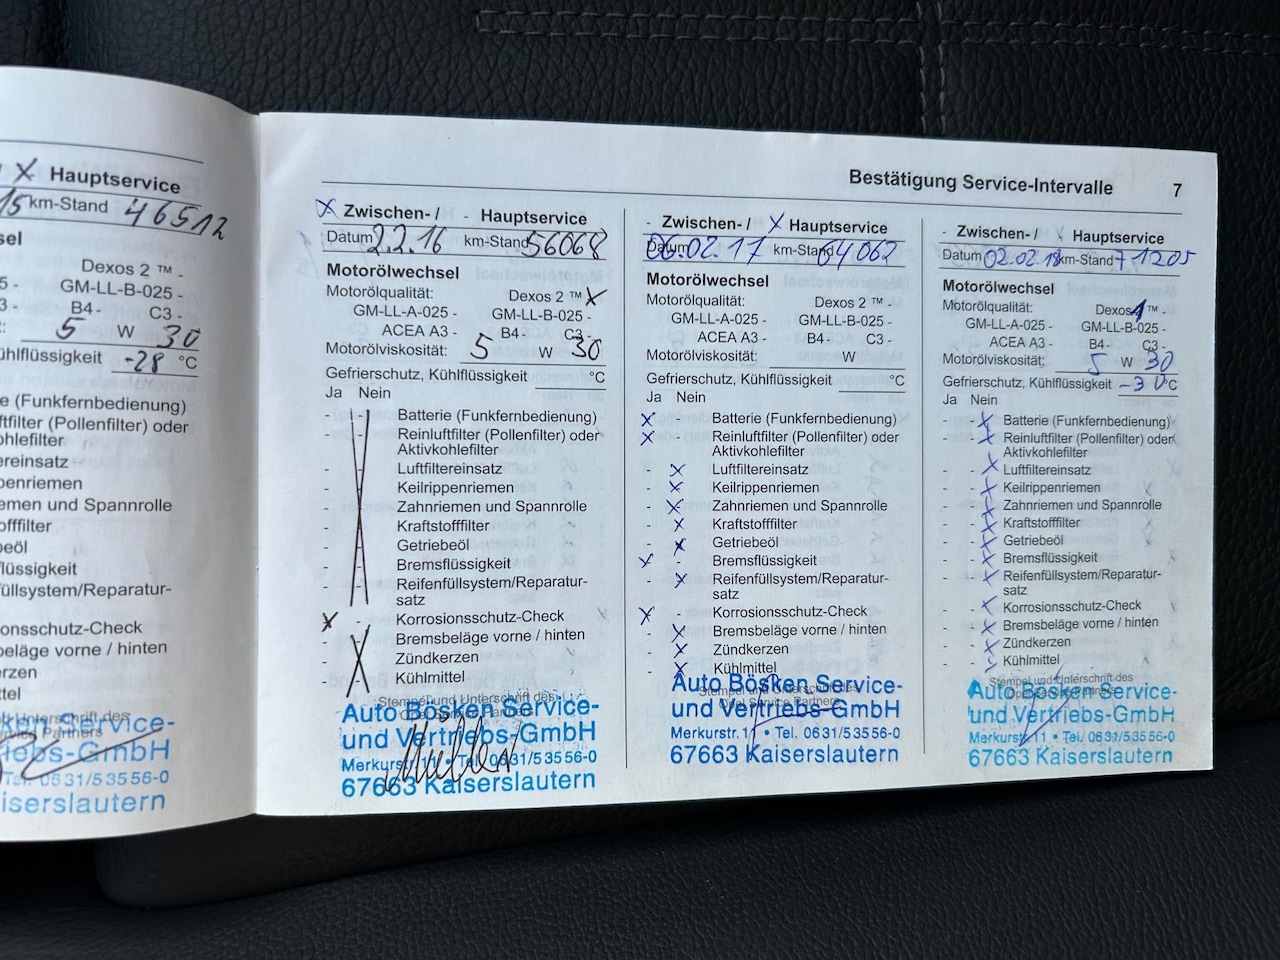 X Hauptservice
15 km-Stand 46512
sel
Dexos 2 ™ -
5 - GM-LL-B-025 -
3 - B4 - C3 -
: 5 W 30
ühlflüssigkeit -28 °C
e (Funkfernbedienung)
ftfilter (Pollenfilter) oder
ohlefilter
ereinsatz
penriemen
emen und Spannrolle
offfilter
beöl
lüssigkeit
üllsystem/Reparatur-
onsschutz-Check
beläge vorne / hinten
erzen
ttel
Unterschrift des
Partners
Service-
iebs-GmbH
Tel. 0631/53556-0
iserslautern
Bestätigung Service-Intervalle 7
X Zwischen- / - Hauptservice
Datum 2.2.16 km-Stand 56068
Motorölwechsel
Motorölqualität: Dexos 2 ™ X
GM-LL-A-025 - GM-LL-B-025 -
ACEA A3 - B4 - C3 -
Motorölviskosität: 5 W 30
Gefrierschutz, Kühlflüssigkeit °C
Ja Nein
- - Batterie (Funkfernbedienung)
- - Reinluftfilter (Pollenfilter) oder
Aktivkohlefilter
- - Luftfiltereinsatz
- - Keilrippenriemen
- - Zahnriemen und Spannrolle
- - Kraftstofffilter
- - Getriebeöl
- - Bremsflüssigkeit
- - Reifenfüllsystem/Reparatur-
satz
X - Korrosionsschutz-Check
- - Bremsbeläge vorne / hinten
- - Zündkerzen
- - Kühlmittel
Stempel und Unterschrift des
Auto Bösken Service-
und Vertriebs-GmbH
Merkurstr. 11 • Tel. 0631/53556-0
67663 Kaiserslautern
- Zwischen- / X Hauptservice
Datum 06.02.17 km-Stand 64062
Motorölwechsel
Motorölqualität: Dexos 2 ™ -
GM-LL-A-025 - GM-LL-B-025 -
ACEA A3 - B4 - C3 -
Motorölviskosität: W
Gefrierschutz, Kühlflüssigkeit °C
Ja Nein
X - Batterie (Funkfernbedienung)
X - Reinluftfilter (Pollenfilter) oder
Aktivkohlefilter
- X Luftfiltereinsatz
- X Keilrippenriemen
- X Zahnriemen und Spannrolle
- X Kraftstofffilter
- X Getriebeöl
X - Bremsflüssigkeit
- X Reifenfüllsystem/Reparatur-
satz
X - Korrosionsschutz-Check
- X Bremsbeläge vorne / hinten
- X Zündkerzen
- X Kühlmittel
Stempel und Unterschrift des
Opel Service Partners
Auto Bösken Service-
und Vertriebs-GmbH
Merkurstr. 11 • Tel. 0631/53556-0
67663 Kaiserslautern
- Zwischen- / Hauptservice
Datum 02.02.18 km-Stand 71205
Motorölwechsel
Motorölqualität: Dexos 1 ™ -
GM-LL-A-025 - GM-LL-B-025 -
ACEA A3 - B4 - C3 -
Motorölviskosität: 5 W 30
Gefrierschutz, Kühlflüssigkeit -30 °C
Ja Nein
- X Batterie (Funkfernbedienung)
- X Reinluftfilter (Pollenfilter) oder
Aktivkohlefilter
- X Luftfiltereinsatz
- X Keilrippenriemen
- X Zahnriemen und Spannrolle
- X Kraftstofffilter
- X Getriebeöl
- X Bremsflüssigkeit
- X Reifenfüllsystem/Reparatur-
satz
- X Korrosionsschutz-Check
- X Bremsbeläge vorne / hinten
- X Zündkerzen
- X Kühlmittel
Stempel und Unterschrift des
Opel Service Partners
Auto Bösken Service-
und Vertriebs-GmbH
Merkurstr. 11 • Tel. 0631/53556-0
67663 Kaiserslautern